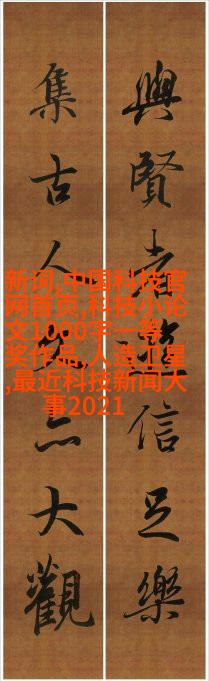 與賢者遊信足樂
集古人亦大觀
新词,中国科技官
网首页,科技小论
文1000字一等
奖作品,人造卫星
,最近科技新闻大
事2021